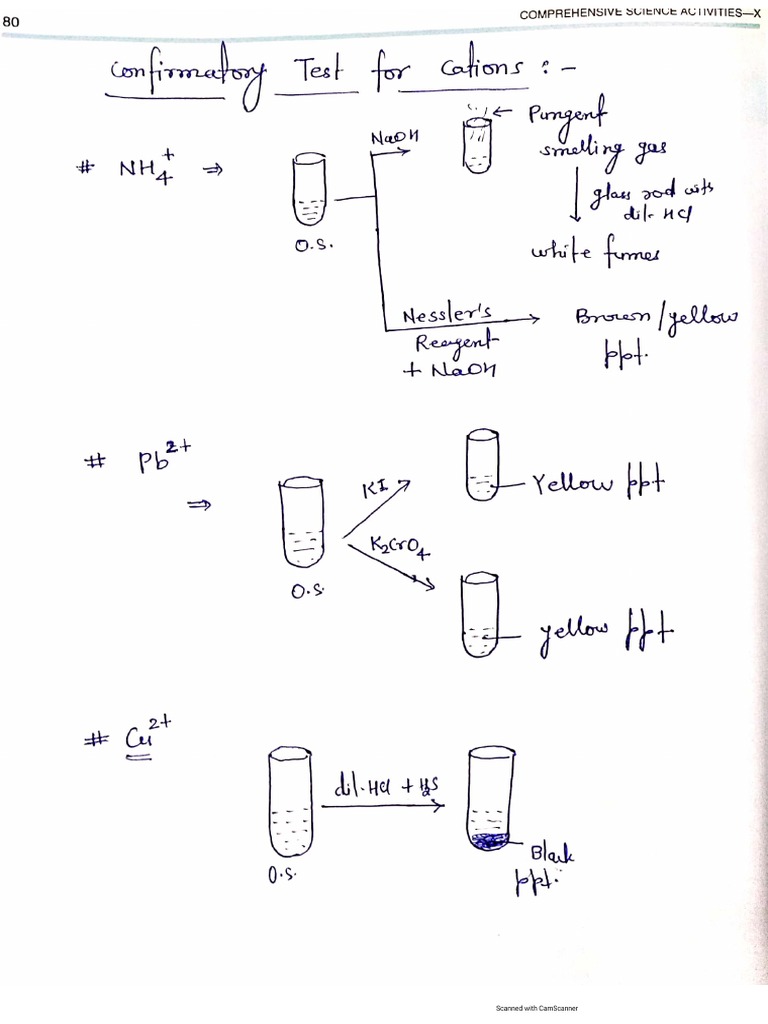 80
COMPREHENSIVE SCIENCE ACTIVITIES—X
Confirmatory Test for Cations : -
# NH4+ ⇒
O.S.
NaOH
← Pungent
smelling gas
glass rod with
dil. HCl
white fumes
Nessler's
Reagent
+ NaOH
Brown/yellow
ppt.
# Pb2+
⇒
O.S.
KI
Yellow ppt
K2CrO4
yellow ppt
# Cu2+
O.S.
dil. HCl + H2S
Black
ppt.
Scanned with CamScanner